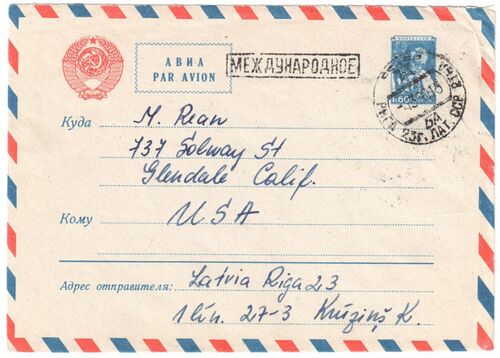 АВИА
PAR AVION
МЕЖДУНАРОДНОЕ
РИГА 23г. ЛАТ. ССР
Куда
M. Rean
737 Solway St
Glendale Calif.
Кому
USA
Адрес отправителя:
Latvia Riga 23
1 lin. 27-3 Krūziņš K.